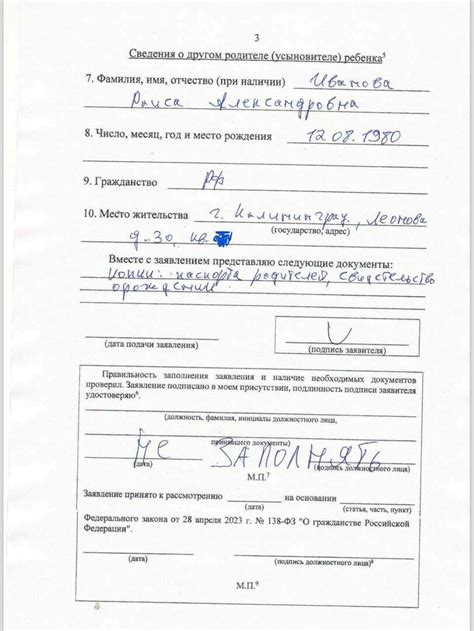 3
Сведения о другом родителе (усыновителе) ребенка⁵
7. Фамилия, имя, отчество (при наличии) Иванова
Раиса Александровна
8. Число, месяц, год и место рождения 12.08.1980
9. Гражданство РФ
10. Место жительства г. Калининград, Леонова
(государство, адрес)
д. 30, кв.
Вместе с заявлением представляю следующие документы:
копии: паспорта родителей, свидетельство
о рождении
(дата подачи заявления)
(подпись заявителя)
Правильность заполнения заявления и наличие необходимых документов
проверил. Заявление подписано в моем присутствии, подлинность подписи заявителя
удостоверяю⁶.
(должность, фамилия, инициалы должностного лица,
принявшего документы)
НЕ ЗАПОЛНЯТЬ
(дата) (подпись должностного лица)
М.П.⁷
Заявление принято к рассмотрению на основании
(дата) (статья, часть, пункт)
Федерального закона от 28 апреля 2023 г. № 138-ФЗ "О гражданстве Российской
Федерации".
(дата) (подпись должностного лица)⁸
М.П.⁹